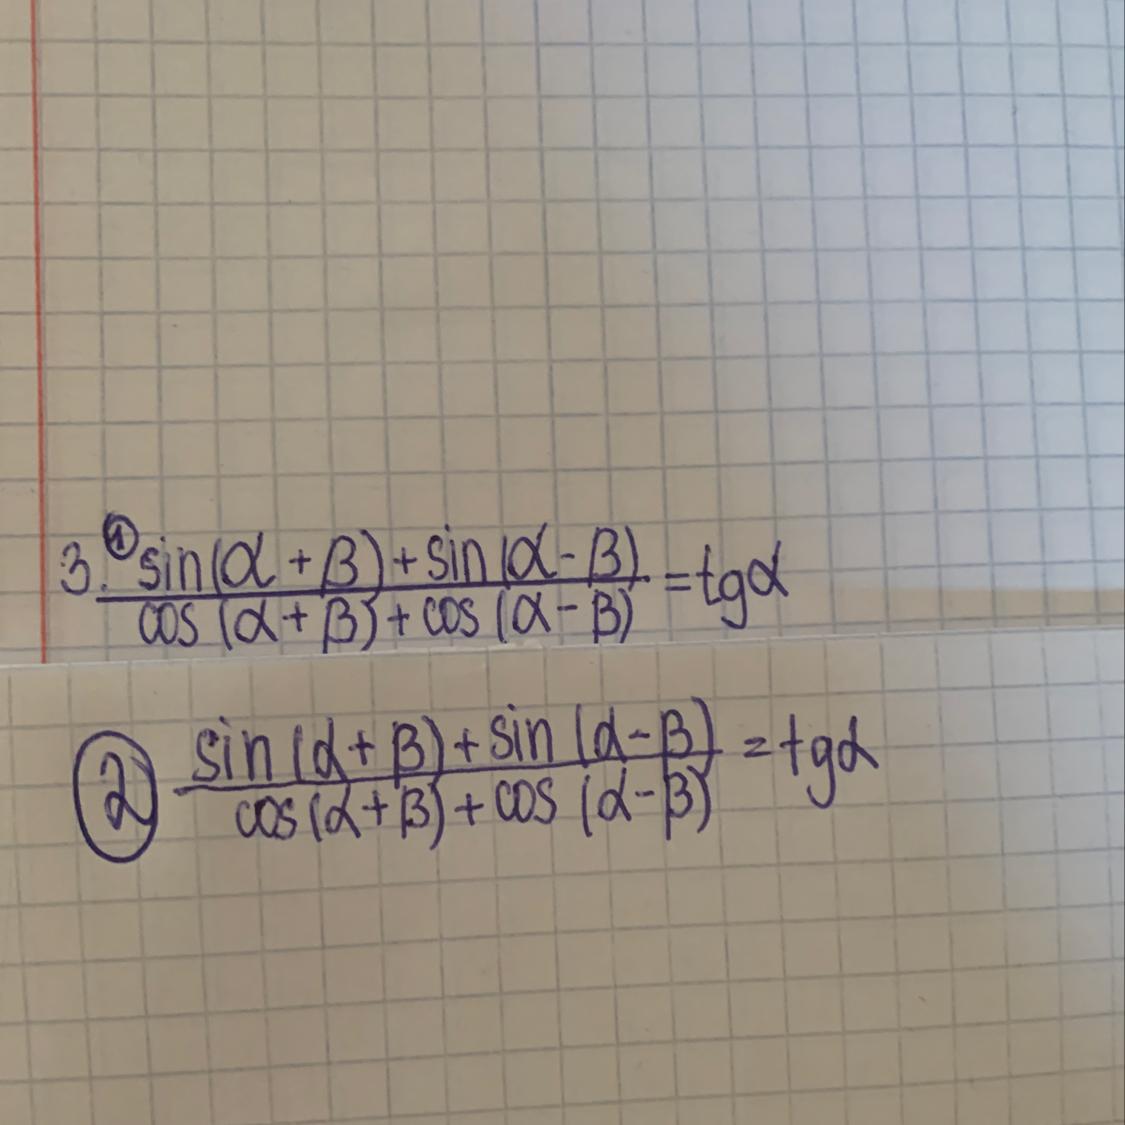 3. ① sin(α + β) + sin(α - β)
cos(α + β) + cos(α - β) = tgα
② sin(α + β) + sin(α - β)
cos(α + β) + cos(α - β) = tgα